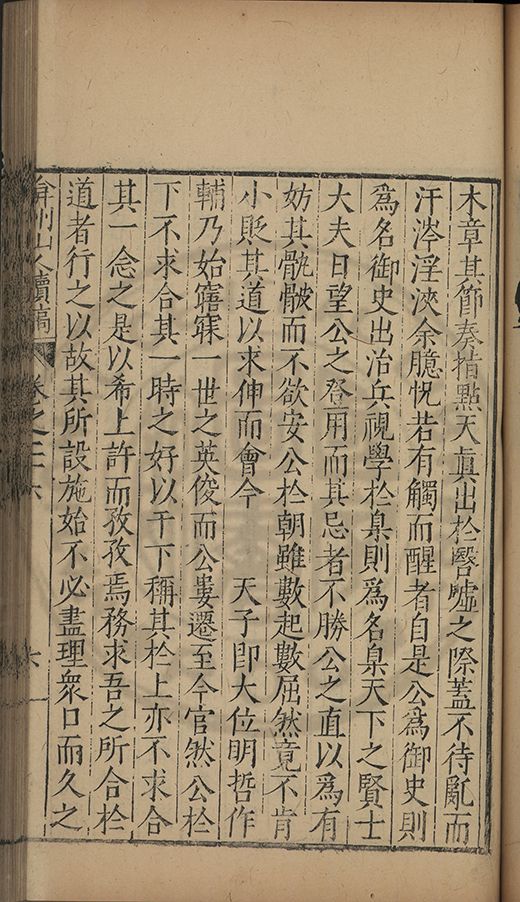 木章其節奏楷點天真出於罄噓之際蓋不待亂而
汗涔浮浹余臆怳若有觸而醒者自是公為御史則
為名御史出治兵視學於臬則為名臬天下之賢士
大夫日望公之登用而其忌者不勝公之直以為有
妨其骯髒而不欲安公於朝雖數起數屈然竟不肯
小貶其道以求伸而會今　天子即大位明哲作
輔乃始寤寐一世之英俊而公婁遷至今官然公於
下不求合其一時之好以干下稱其於上亦不求合
其一念之是以希上許而孜孜焉務求吾之所合於
道者行之以故其所設施始不必盡理衆口而久之
弇州山人續稿 卷之三 六